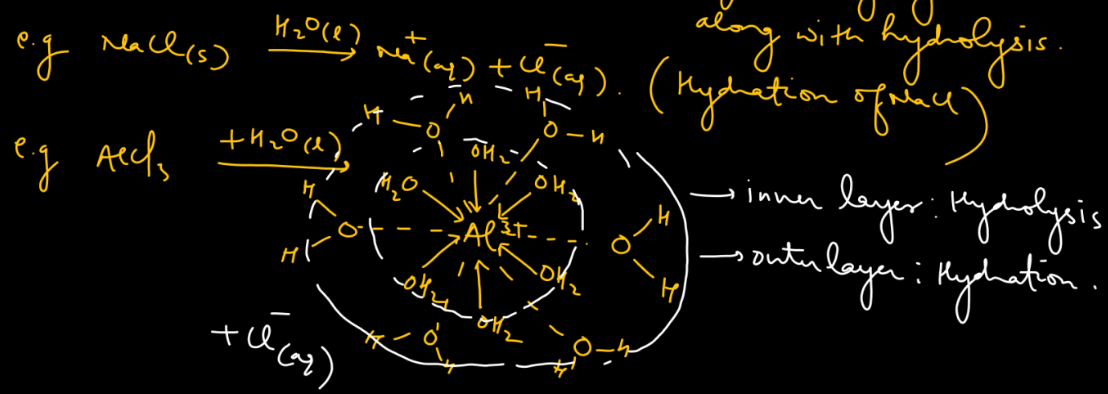 along with hydrolysis.
e.g NaCl(s) H₂O(l) → Na⁺(aq) + Cl⁻(aq). (Hydration of NaCl)
e.g AlCl₃ +H₂O(l) →
H H
H O O H
OH₂
H₂O OH₂
H O Al³⁺ O H
H H
OH₂ OH₂
OH₂
H O O H
H H
+ Cl⁻(aq)
→ inner layer : Hydrolysis
→ outer layer : Hydration.